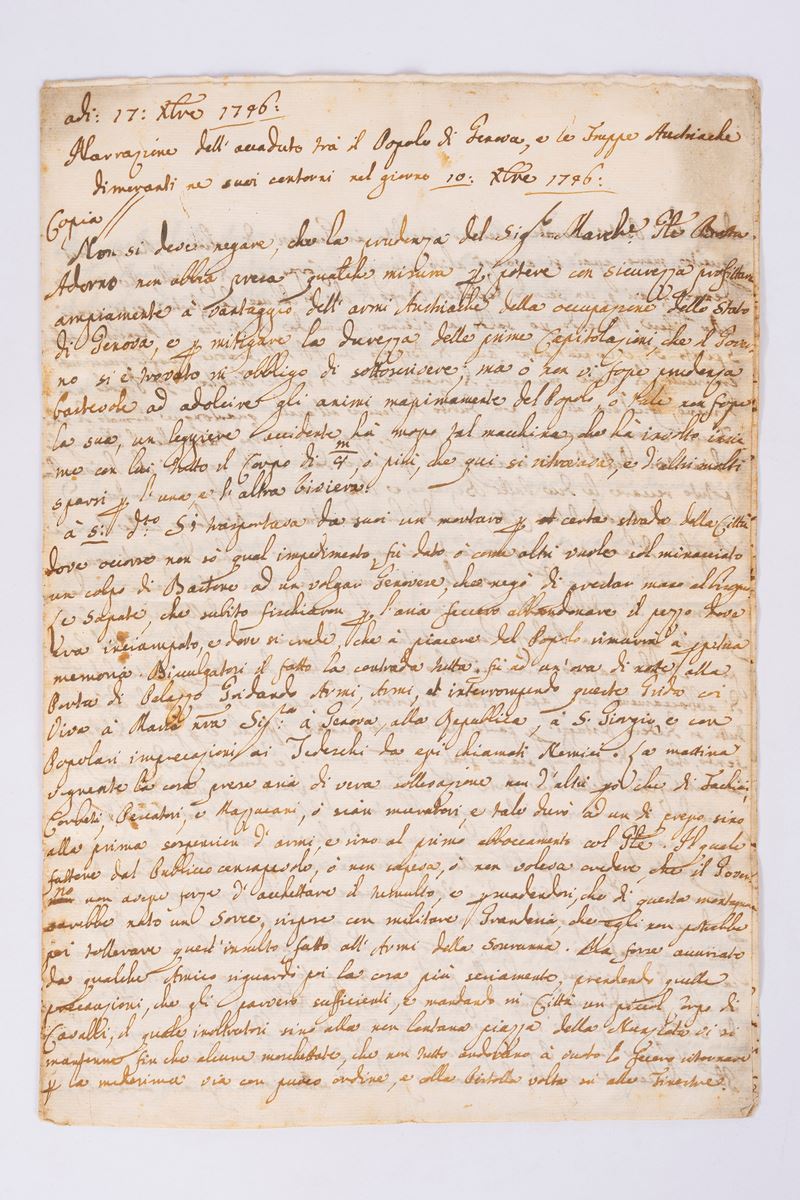 adi: 17: Xbre 1746:
Narrazione dell'accaduto trà il Popolo di Genova, e le Truppe Austriache
dimoranti ne suoi contorni nel giorno 10: Xbre 1746:
Copia //
Non si deve negare, che la prudenza del Sig.r March.e Gñle Botta
Adorno non abbia presa qualche misura p potere con sicurezza profittare
ampiamente à vantaggio dell'armi Austriache della occupazione dello Stato
di Genova, e p mitigare la durezza delle prime Capitolazioni, che il Gover-
no si è trovato in obbligo di sottoscrivere; ma ò non vi fosse prudenza
bastevole ad adolcire gli animi massimamente del Popolo, ò tale non fosse
la sua, un leggiere accidente hà mosso tal macchina, che hà involto insie
me con lui tutto il Corpo di m/4, ò più, che qui si ritrovava, e d'altri molti
sparsi p l'una, e l'altra Riviera.
à 5: d.to Si trasportava da suoi un mortaro p certa strada della Città
dove occorse non sò qual impedimento, fù dato ò come altri vuole sol minacciato
un colpo di Bastone ad un volgar Genovese, che negò di prestar mano all'
Le Sapate, che subito fischiaron p l'aria fecero abbandonare il pezzo dove
era inciampato, e dove si crede, che à piacere del Popolo rimarrà à ppetua
memoria. Divulgatosi il fatto la contrada tutta fù ad un'ora di notte alla
Porta di Palazzo Gridando Armi, Armi, et interrompendo queste Grida coi
Viva à Maria nra Sig.ra à Genova, alla Republica, à S. Giorgio, e con
Popolari imprecazioni ai Tedeschi da essi chiamati Nemici. La mattina
seguente la cosa prese aria di vera sollevazione non d'altri però che di Fachini,
Pescatori, e Mazzacani, ò sian muratori, e tale durò ad un di presso sino
alla prima sospension d'armi, e sino al primo abboccamento col Gñle. Il quale
fattone dal Publico consapevolo, ò non sapeva, ò non voleva credere, che il Gover-
no non avesse forze d'acchettare il tumulto, e psuadendosi, che di questa montagna
sarebbe nato un Sorce, rispose con militare Grandezza, che egli non potrebbe
poi tollerare quest'insulto fatto all'Armi della Sovranna. Ma forse avvisato
da qualche Amico riguardò poi la cosa più seriamente, prendendo quelle
precauzioni, che gli parvero sufficienti, e mandando in Città un piccol Corpo di
Cavalli, il quale inoltratosi sino alla non lontana piazza della Nunziata vi si
mantenne fin che alcune moschettate, che non tutte andavano à vuoto lo fecero ritornare
p la medesima via con puoco ordine, e colla Pistolla volta sù alle Finestre.